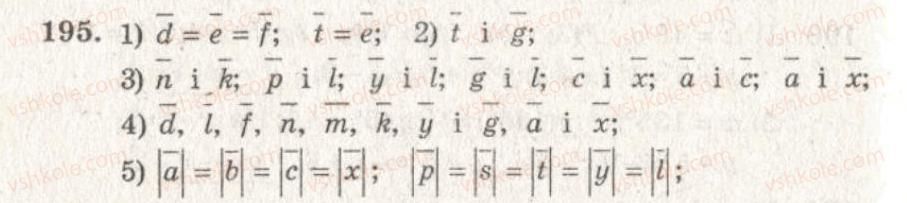 195. 1) d̅ = e̅ = f̅; t̅ = e̅; 2) t̅ і g̅;
3) n̅ і k̅; p̅ і l̅; y̅ і l̅; g̅ і l̅; c̅ і x̅; a̅ і c̅; a̅ і x̅;
4) d̅, l̅, f̅, n̅, m̅, k̅, y̅ і g̅, a̅ і x̅;
5) |a̅| = |b̅| = |c̅| = |x̅|; |p̅| = |s̅| = |t̅| = |y̅| = |l̅|;